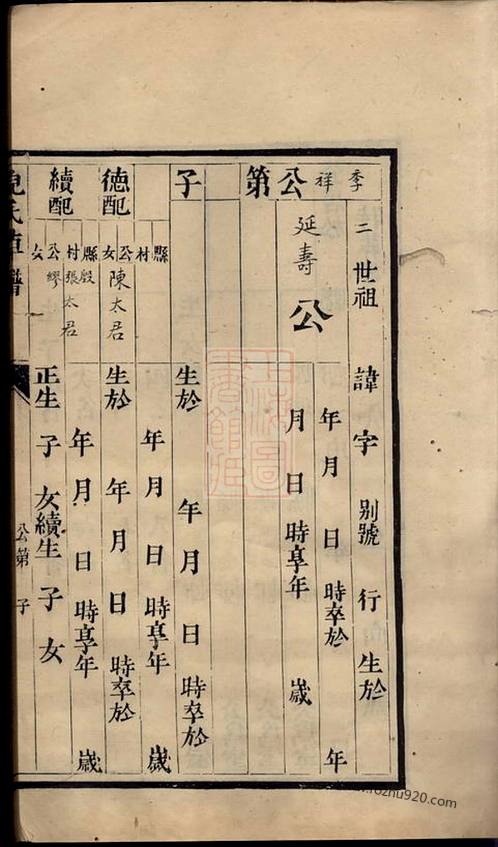 季祥公第子
二世祖 諱 字 別號 行 生於
年 月 日 時卒於 年
延壽公 月 日 時享年 歲
生於 年 月 日 時卒於
縣 村 年 月 日 時享年 歲
德配 公女 陳太君 生於 年 月 日 時卒於
縣 村 張太君 年 月 日 時享年 歲
續配 公女 正生 子 女 續生 子 女
公第 子
氏 譜
上海圖書館藏
www.rozhu920.com